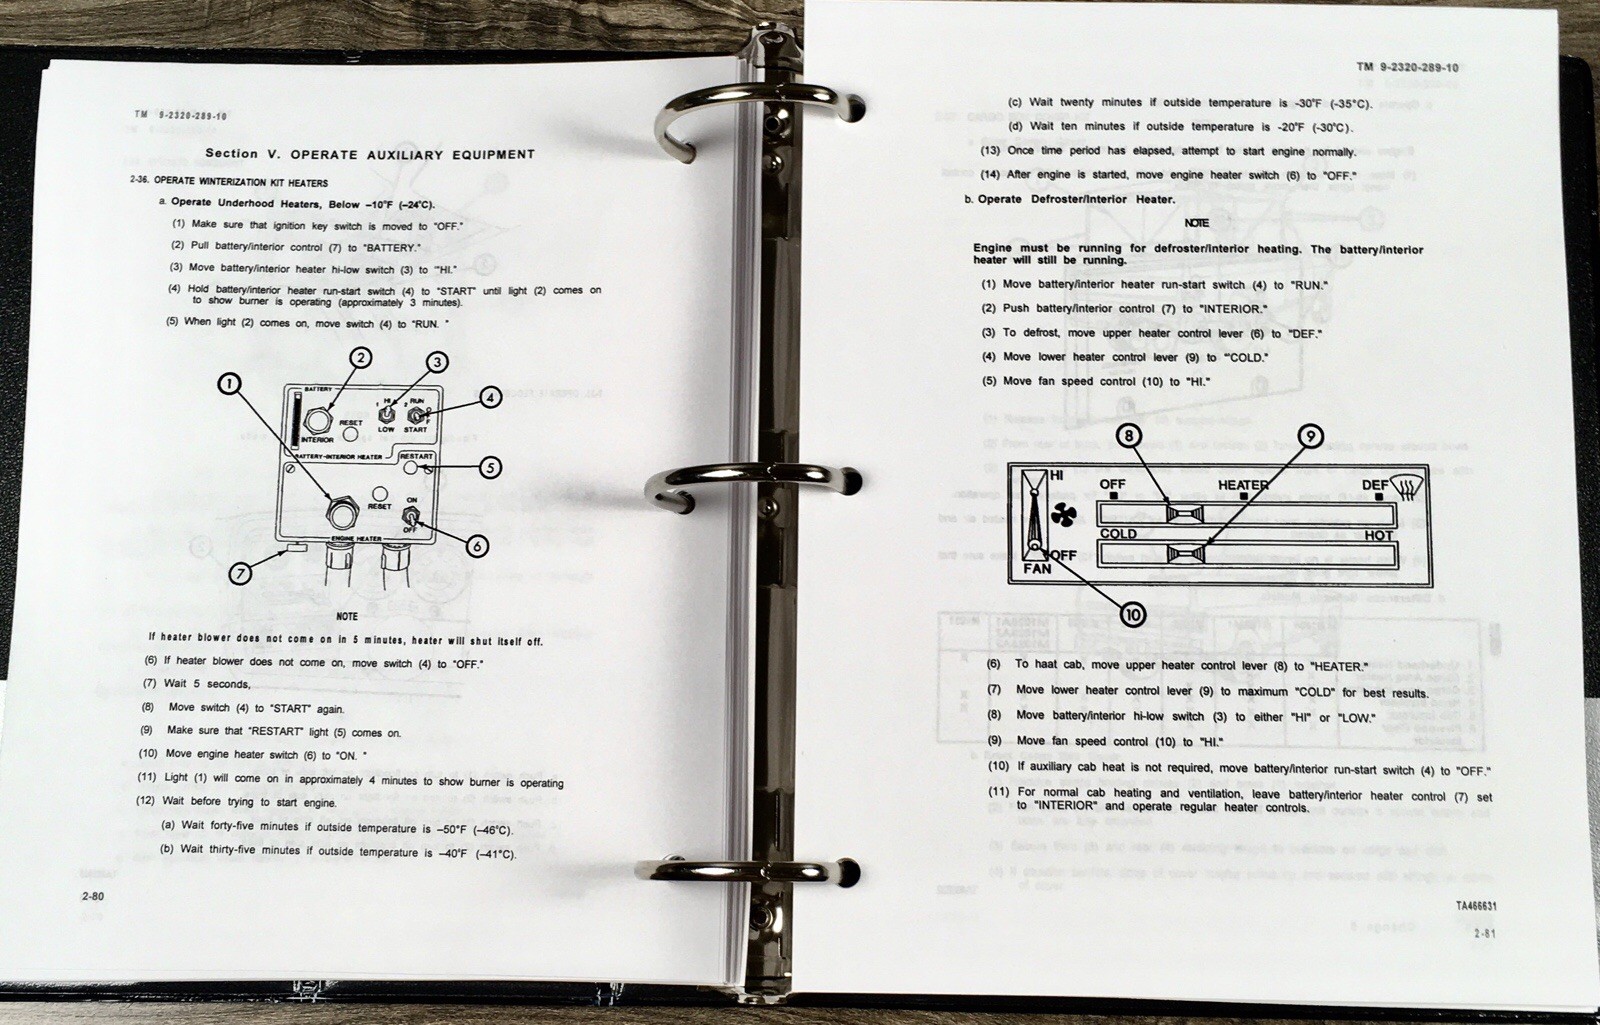 TM 9-2320-289-10
Section V. OPERATE AUXILIARY EQUIPMENT
2-36. OPERATE WINTERIZATION KIT HEATERS
a. Operate Underhood Heaters, Below –10°F (–24°C).
(1) Make sure that ignition key switch is moved to "OFF."
(2) Pull battery/interior control (7) to "BATTERY."
(3) Move battery/interior heater hi-low switch (3) to "'HI."
(4) Hold battery/interior heater run-start switch (4) to "START" until light (2) comes on
to show burner is operating (approximately 3 minutes).
(5) When light (2) comes on, move switch (4) to "RUN. "
1
2
3
4
5
6
7
BATTERY
INTERIOR
RESET
1 HI
LOW
2 RUN
OFF
START
BATTERY-INTERIOR HEATER
RESTART
RESET
ON
OFF
ENGINE HEATER
NOTE
If heater blower does not come on in 5 minutes, heater will shut itself off.
(6) If heater blower does not come on, move switch (4) to "OFF."
(7) Wait 5 seconds,
(8) Move switch (4) to "START" again.
(9) Make sure that "RESTART" light (5) comes on.
(10) Move engine heater switch (6) to "ON. "
(11) Light (1) will come on in approximately 4 minutes to show burner is operating
(12) Wait before trying to start engine.
(a) Wait forty-five minutes if outside temperature is –50°F (–46°C).
(b) Wait thirty-five minutes if outside temperature is –40°F (–41°C).
2-80
TM 9-2320-289-10
(c) Wait twenty minutes if outside temperature is -30°F (-35°C).
(d) Wait ten minutes if outside temperature is -20°F (-30°C).
(13) Once time period has elapsed, attempt to start engine normally.
(14) After engine is started, move engine heater switch (6) to "OFF."
b. Operate Defroster/Interior Heater.
NOTE
Engine must be running for defroster/interior heating. The battery/interior
heater will still be running.
(1) Move battery/interior heater run-start switch (4) to "RUN."
(2) Push battery/interior control (7) to "INTERIOR."
(3) To defrost, move upper heater control lever (6) to "DEF."
(4) Move lower heater control lever (9) to "'COLD."
(5) Move fan speed control (10) to "HI."
8
9
HI
OFF
HEATER
DEF
COLD
HOT
OFF
FAN
10
(6) To haat cab, move upper heater control lever (8) to "HEATER."
(7) Move lower heater control lever (9) to maximum "COLD" for best results.
(8) Move battery/interior hi-low switch (3) to either "HI" or "LOW."
(9) Move fan speed control (10) to "HI."
(10) If auxiliary cab heat is not required, move battery/interior run-start switch (4) to "OFF."
(11) For normal cab heating and ventilation, leave battery/interior heater control (7) set
to "INTERIOR" and operate regular heater controls.
TA466631
2-81